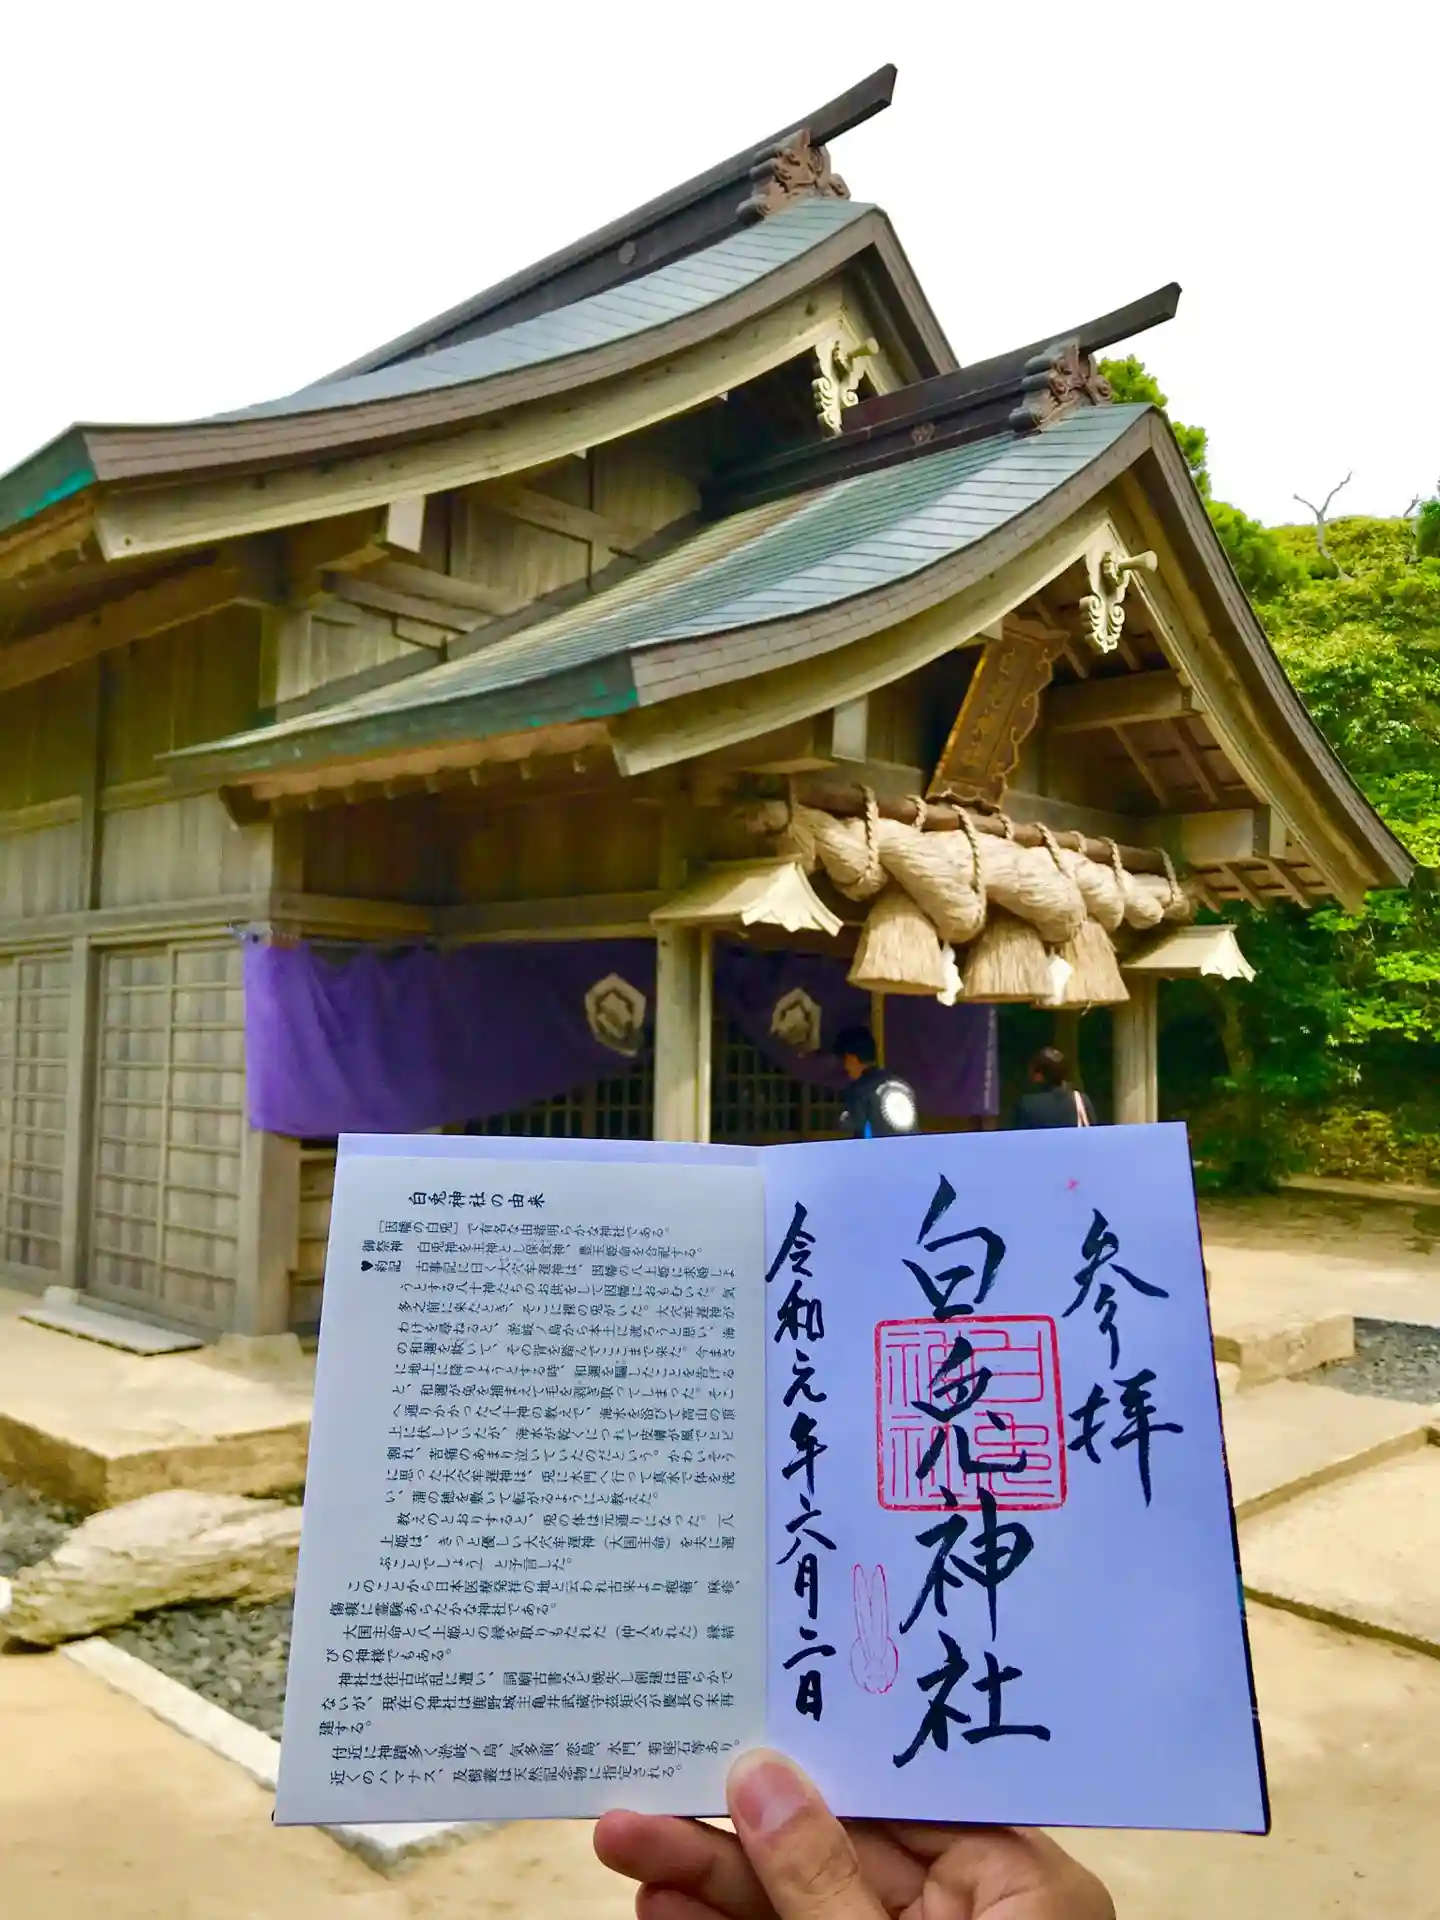 白兎神社の由来
「因幡の白兎」で有名な由緒明らかな神社である。
御祭神 白兎神を主神とし保食神、豊玉姫命を合祀する。
♥約記 古事記に曰く大穴牟遅神は、因幡の八上姫に求婚しよ
うとする八十神たちのお供をして因幡におもむいた。気
多之前に来たとき、そこに裸の兎がいた。大穴牟遅神が
わけを尋ねると、淤岐ノ島から本土に渡ろうと思い、海
の和邇を欺いて、その背を踏んでここまで来た。今まさ
に地上に降りようとする時、和邇を騙したことを告げる
と、和邇が兎を捕まえて毛を剥ぎ取ってしまった。そこ
へ通りかかった八十神の教えで、海水を浴びて高山の頂
上に伏していたが、海水が乾くにつれて皮膚が風でヒビ
割れ、苦痛のあまり泣いていたのだという。かわいそう
に思った大穴牟遅神は、兎に水門へ行って真水で体を洗
い、蒲の穂を敷いて転がるようにと教えた。
教えのとおりすると、兎の体は元通りになった。「八
上姫は、きっと優しい大穴牟遅神（大国主命）を夫に選
ぶことでしょう」と予言した。
このことから日本医療発祥の地と云われ古来より疱瘡、麻疹、
傷痍に霊験あらたかな神社である。
大国主命と八上姫との縁を取りもたれた（仲人された）縁結
びの神様でもある。
神社は往古兵乱に遭い、詞朝古書など焼失し創建は明らかで
ないが、現在の神社は鹿野城主亀井武蔵守茲矩公が慶長の末再
建する。
付近に神蹟多く淤岐ノ島、気多前、恋島、水門、菊座石等あり。
近くのハマナス、及樹叢は天然記念物に指定される。
参拝
白兎神社
白兎神社
令和元年六月二日